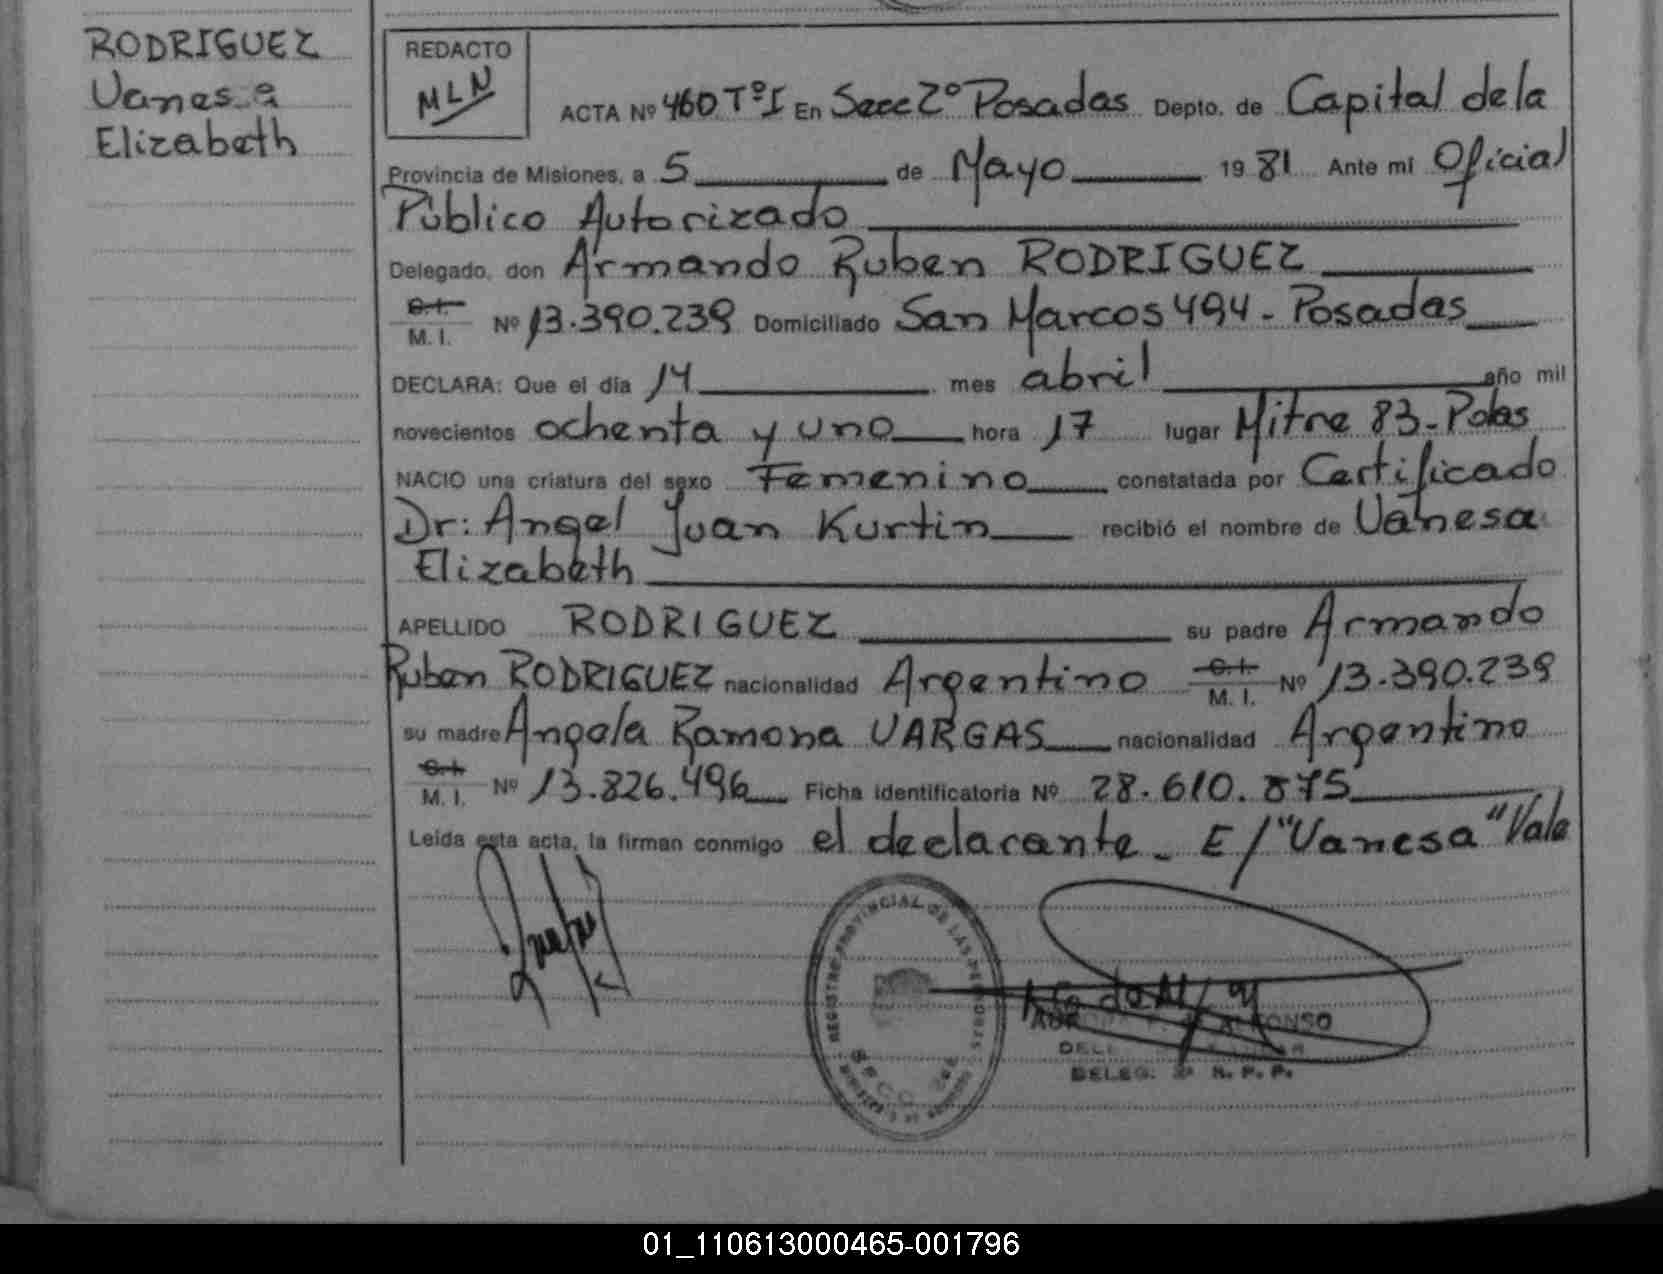 RODRIGUEZ
Vanesa
Elizabeth
REDACTO
MLN
ACTA Nº 460 TºI En Secc 2º Posadas Depto. de Capital de la
Provincia de Misiones, a 5 de Mayo 1981 Ante mi Oficial
Público Autorizado
Delegado, don Armando Ruben RODRIGUEZ
C.I.
M. I. Nº 13.390.239 Domiciliado San Marcos 494 - Posadas
DECLARA: Que el día 14 mes abril año mil
novecientos ochenta y uno hora 17 lugar Mitre 83 - Pdas
NACIO una criatura del sexo Femenino constatada por Certificado
Dr: Angel Juan Kurtin recibió el nombre de Vanesa
Elizabeth
APELLIDO RODRIGUEZ su padre Armando
Ruben RODRIGUEZ nacionalidad Argentino C.I. M. I. Nº 13.390.239
su madre Angela Ramona VARGAS nacionalidad Argentino
C.I.
M. I. Nº 13.826.496 Ficha identificatoria Nº 28.610.875
Leída esta acta, la firman conmigo el declarante - E/"Vanesa" Vale
REGISTRO PROVINCIAL DE LAS PERSONAS
DELEG. 2ª R. P. P.
01_110613000465-001796